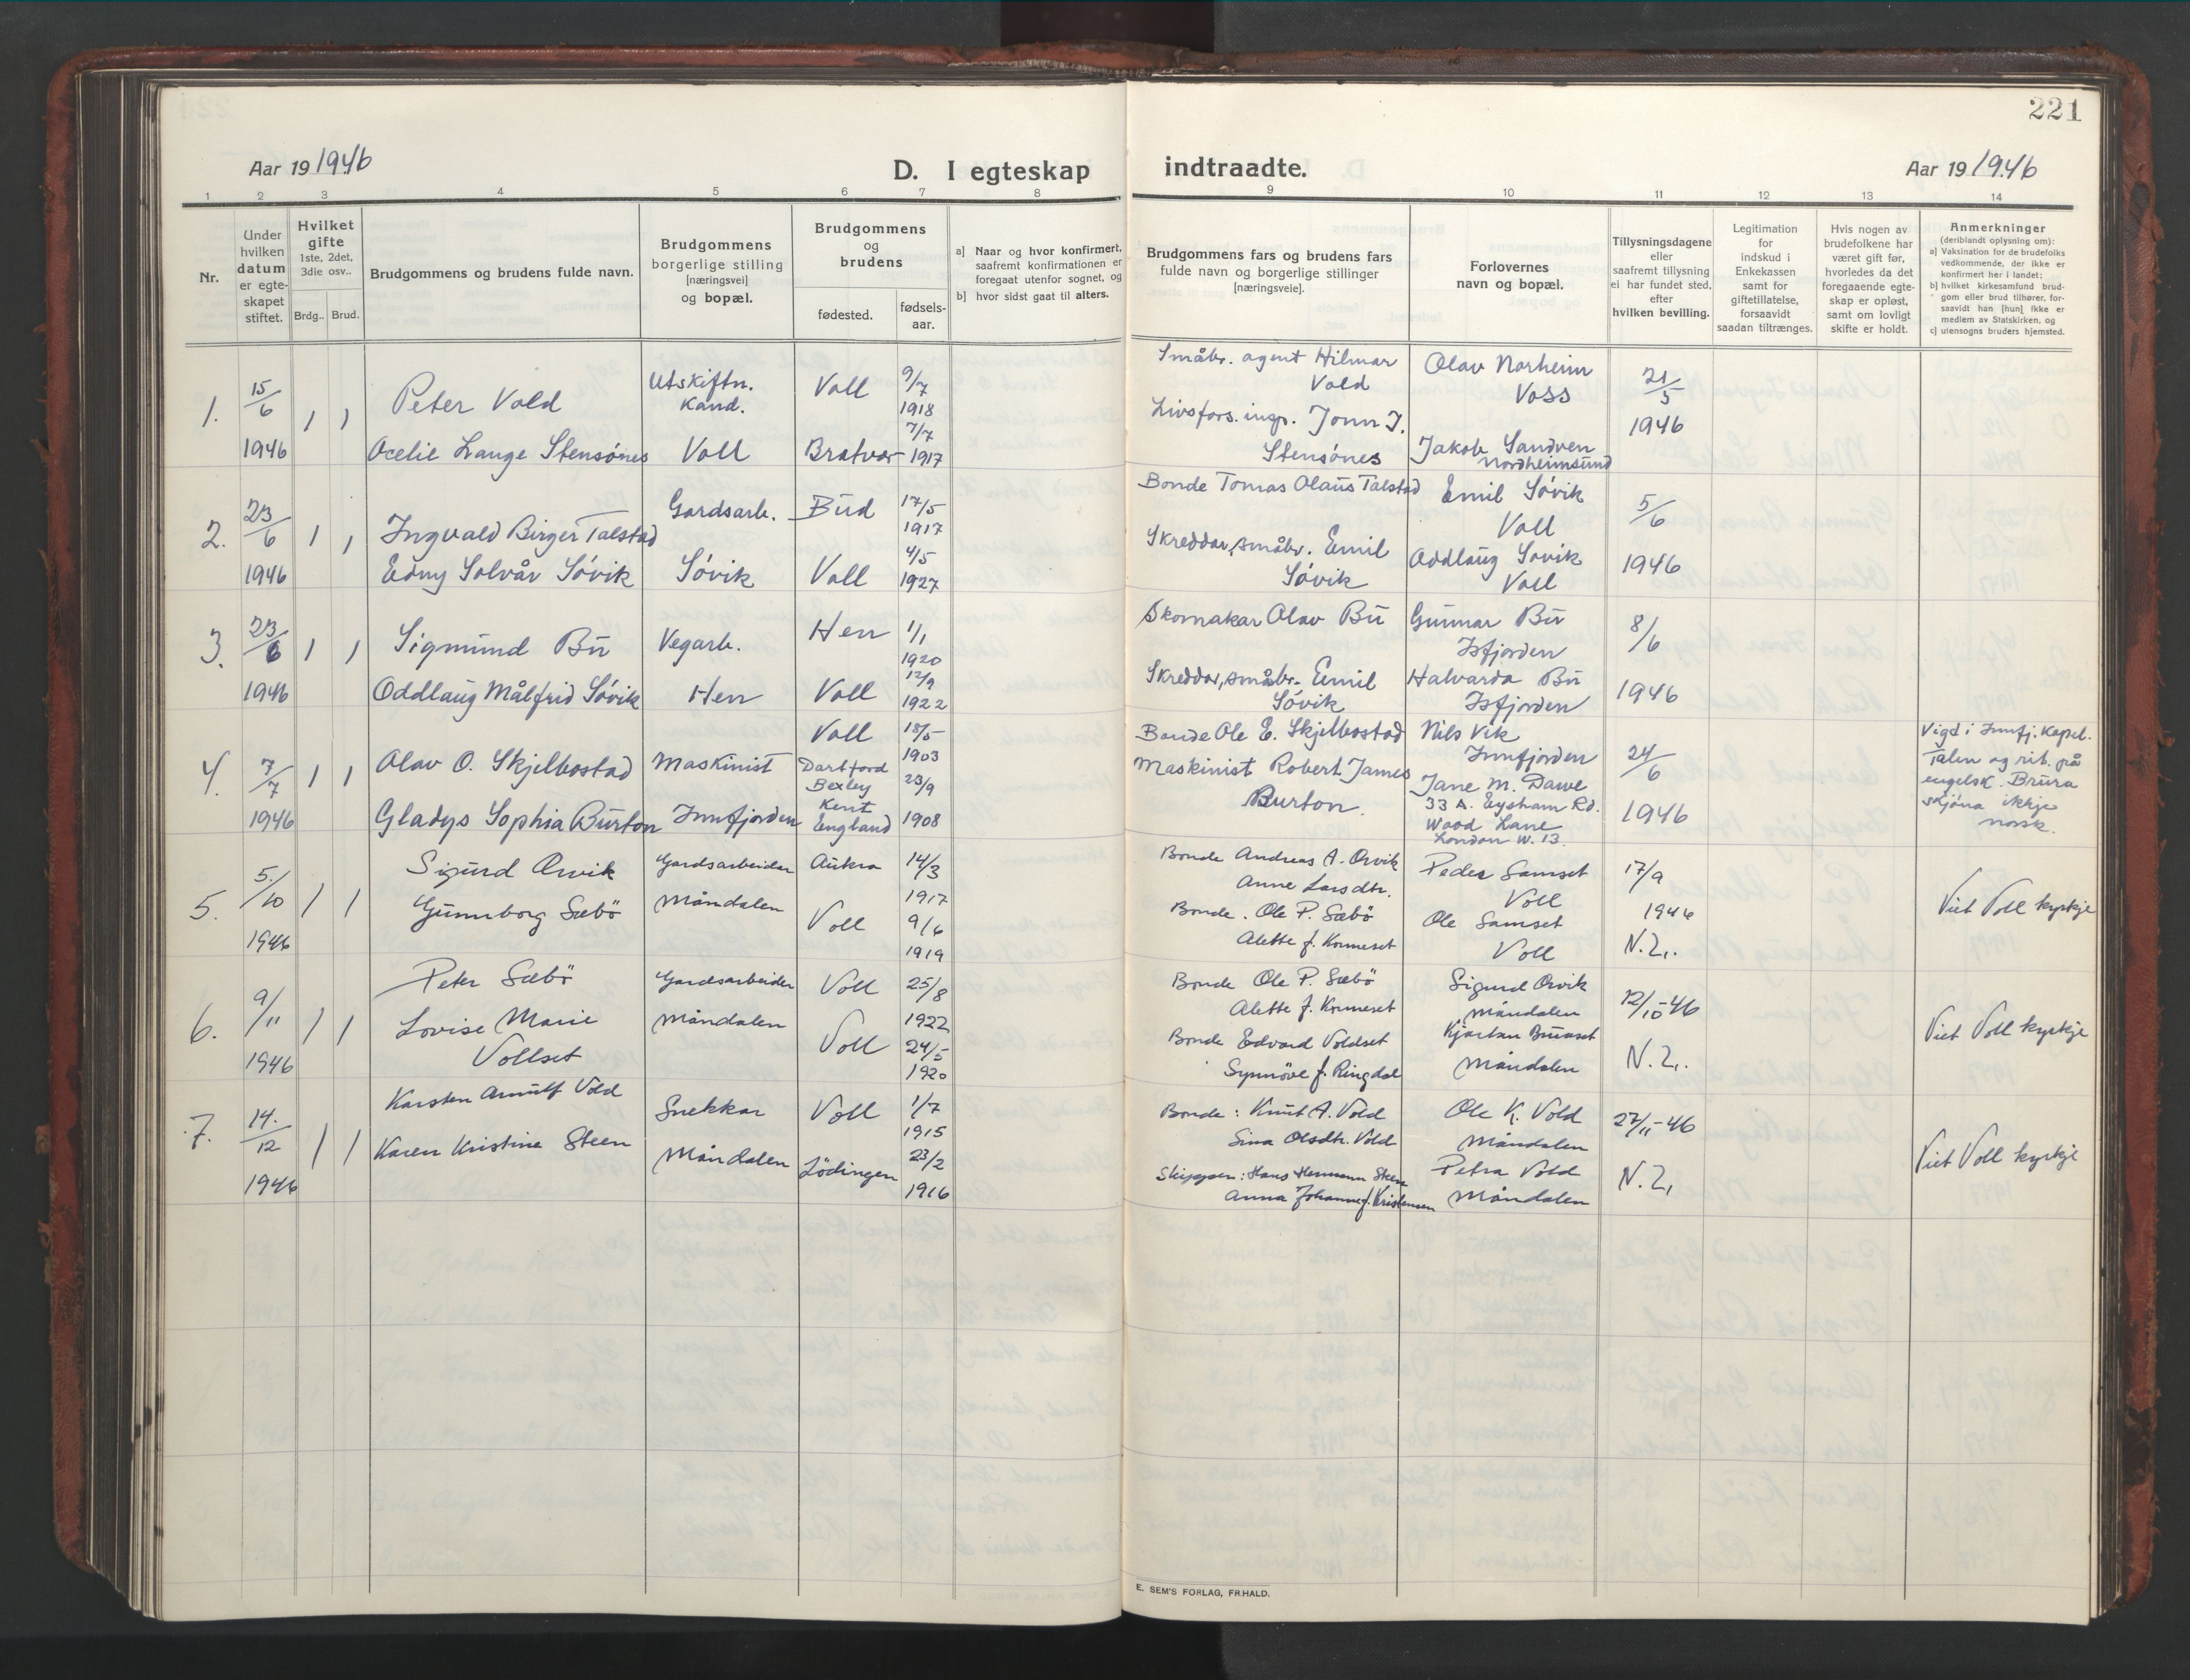 221
Aar 19 1946
D. I egteskap
indtraadte.
Aar 19 1946
1 2 3 4 5 6 7 8 9 10 11 12 13 14
Nr.
Under
hvilken
datum
er egte-
skapet
stiftet.
Hvilket
gifte
1ste, 2det,
3die osv..
Brdg.. Brud.
Brudgommens og brudens fulde navn.
Brudgommens
borgerlige stilling
[næringsvei]
og bopæl.
Brudgommens
og
brudens
fødested.
fødsels-
aar.
a] Naar og hvor konfirmert,
saafremt konfirmationen er
foregaat utenfor sognet, og
b] hvor sidst gaat til alters.
Brudgommens fars og brudens fars
fulde navn og borgerlige stillinger
[næringsveie].
Forlovernes
navn og bopæl.
Tillysningsdagene
eller
saafremt tillysning
ei har fundet sted,
efter
hvilken bevilling.
Legitimation
for
indskud i
Enkekassen
samt for
giftetillatelse,
forsaavidt
saadan tiltrænges.
Hvis nogen av
brudefolkene har
været gift før,
hvorledes da det
foregaaende egte-
skap er opløst,
samt om lovligt
skifte er holdt.
Anmerkninger
(deriblandt oplysning om):
a) Vaksination for de brudefolks
vedkommende, der ikke er
konfirmert her i landet;
b) hvilket kirkesamfund brud-
gom eller brud tilhører, for-
saavidt han [hun] ikke er
medlem av Statskirken, og
c) utensogns bruders hjemsted.
1. 15/6 1946 1 1
Peter Vold
Utskiftn.
Kand.
Voll
9/7
1918
Småbr. agent Hilmar
Vold
Olav Norheim
Voss
21/5
1946
Lange Stensönes
Voll
Brattvær
7/7
1917
Livsfors. insp. J.
Stensönes
Jakob Sandven
Nordheimsund
2. 23/6 1946 1 1
Ingvald Birger Talstad
Gardsarb.
Bud
17/5
1917
Bonde Tomas Olaus Talstad
Emil Sövik
Voll
5/6
1946
Edny Solvår Sövik
Sövik
Voll
4/5
1927
Skreddar, småbr. Emil
Sövik
Oddlaug Sövik
Voll
3. 23/6 1946 1 1
Sigmund Bu
Vegarb.
Hen
1/1
1920
Skomakar Olav Bu
Gunnar Bu
Isfjorden
8/6
1946
Oddlaug Målfrid Sövik
Hen
Voll
12/9
1922
Skreddar, småbr. Emil
Sövik
Halvarda Bu
Isfjorden
4. 7/7 1946 1 1
Olav O. Skjelbostad
Maskinist
Voll
1903
Bonde Ole E. Skjelbostad
Nils Vik
Innfjorden
24/6
1946
Vigd i Innfj. Kapel.
Talen og rit. på
engelsk. Brura
skjöna ikkje
norsk.
Gladys Sophia Burton
Innfjorden
Dartford
Bexley
Kent
England
23/9
1908
Maskinist Robert James
Burton.
Jane M. Dawe
33 A. Eynsham Rd.
Wood Lane
London W. 13.
5. 5./10 1946 1 1
Sigurd Orvik
Gardsarbeider
Aukra
14/3
1917
Bonde Andreas A. Orvik
Anne Larsdtr.
Peder Samset
Voll
17/9
1946
N. L.
Viet Voll kyrkje
Gunnborg Sæbö
Måndalen
Voll
9/6
1919
Bonde. Ole P. Sæbö
Alette f.
Ole Samset
Voll
6. 9/11 1946 1 1
Peter Sæbö
Gardsarbeider
Voll
25/8
1922
Bonde Ole P. Sæbö
Alette f.
Sigurd Orvik
Måndalen
12/10-46
N. L.
Viet Voll kyrkje
Lovise Marie
Vollset
Måndalen
Voll
24/5
1920
Bonde Edvard Voldset
Synnöve f. Ringdal
Kjartan
Måndalen
7. 14./12 1946 1 1
Karsten Arnulf Vold
Snekkar
Voll
1/7
1915
Bonde: Knut A. Vold
Sina Olsdtr. Vold
Ole K. Vold
Måndalen
27/11-46
N. L.
Viet Voll kyrkje
Karen Kristine Steen
Måndalen
Lödingen
23/2
1916
Skipper: Hans Hermann Steen
Anna Johanne f. Kristensen
Petra Vold
Måndalen
E. SEM'S FORLAG, FR.HALD.